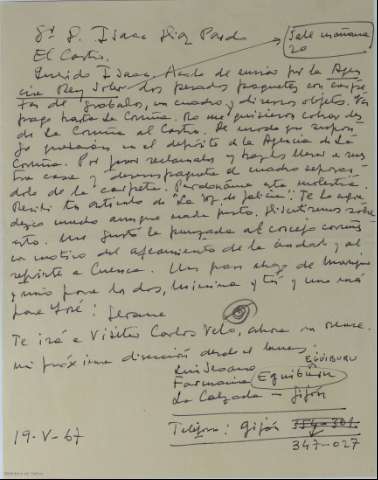 Sr. D. Isaac Díaz Pardo
Sale mañana
20
El Castro.
Querido Isaac: Acabo de enviar por la Agen
cia Rey Soler dos pesados paquetes con carpe
tas de grabados, un cuadro y diversos objetos. Va
pago hasta La Coruña. No me quisieron cobrar des
de La Coruña al Castro. De modo que supon
go quedarán en el depósito de la Agencia de La
Coruña. Por favor reclamadlos y hacedlos llevar a vues
tra casa y desempaquetar el cuadro separan
dolo de la carpeta. Perdonáme esta molestia.
Recibí tu artículo de La Voz de Galicia: Te lo agra
dezco mucho aunque nada justo. Discutiremos sobre
esto. Me gustó la punzada al concejo coruñés
con motivo del afeamiento de la ciudad y al
referirte a Cuenca. Un gran abrazo de Maruja
y mío para los dos, Mimina y tú y uno más
para José:
Seoane
Te irá a visitar Carlos Velo, ahora en
mi próxima dirección desde el lunes:
EGUIBURU
Luis Seoane
Farmacia Eguiburu
La Calzada - Gijón
19-V-67
Teléfono: Gijón 354-301
347-027